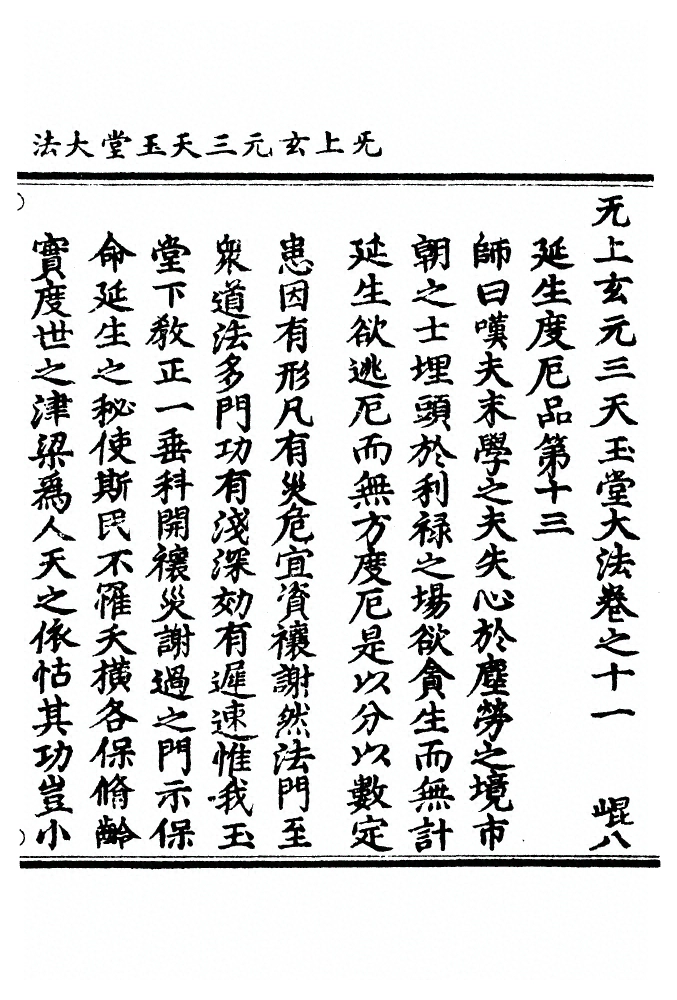 无上玄元三天玉堂大法
无上玄元三天玉堂大法卷之十一 崐八
延生度厄品第十三
師曰嘆夫末學之夫失心於塵勞之境市
朝之士埋頭於利祿之場欲貪生而無計
延生欲逃厄而無方度厄是以分以數定
患因有形凡有災危宜資禳謝然法門至
衆道法多門功有淺深効有遲速惟我玉
堂下教正一垂科開禳災謝過之門示保
命延生之秘使斯民不罹夭橫各保脩齡
實度世之津梁爲人天之依怙其功豈小